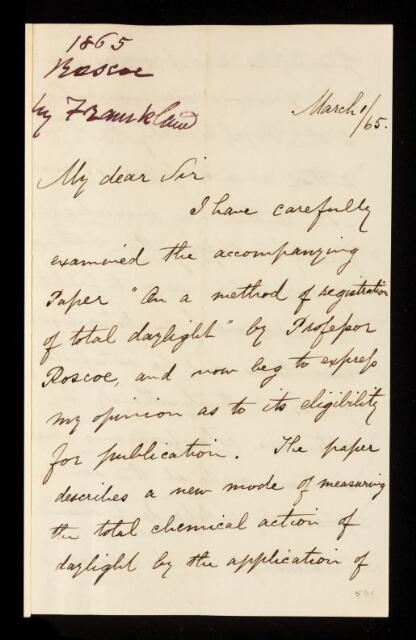 1865
Roscoe
by Frankland
March 1/65.
My dear Sir
I have carefully
examined the accompanying
Paper "On a method of registration
of total daylight" by Professor
Roscoe, and now beg to express
my opinion as to its eligibility
for publication. The paper
describes a new mode of measuring
the total chemical action of
daylight by the application of